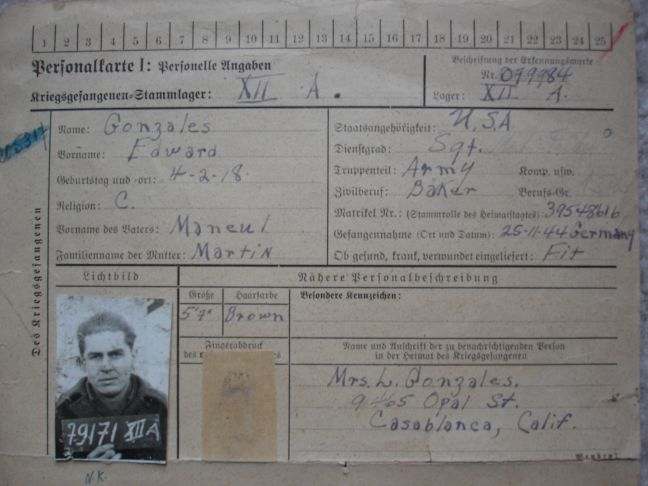 1 2 3 4 5 6 7 8 9 10 11 12 13 14 15 16 17 18 19 20 21 22 23 24 25
Personalkarte I: Personelle Angaben
Kriegsgefangenen-Stammlager: XII A.
Beschriftung der Erkennungsmarke
Nr. 079984
Lager: XII A.
Des Kriegsgefangenen
Name: Gonzales
Vorname: Edward
Geburtstag und -ort: 4-2-18.
Religion: C.
Vorname des Vaters: Maneul
Familienname der Mutter: Martin
Staatsangehörigkeit: U.S.A
Dienstgrad: Sgt.
Truppenteil: Army Komp. usw.
Zivilberuf: Baker Berufs-Gr.
Matrikel Nr.: (Stammrolle des Heimatstaates) 39548616
Gefangennahme (Ort und Datum): 25-11-44 Germany
Ob gesund, krank, verwundet eingeliefert: Fit
Lichtbild
Nähere Personalbeschreibung
Größe Haarfarbe
5'7" Brown
Besondere Kennzeichen:
Fingerabdruck
des
79171 XII A
Name und Anschrift der zu benachrichtigenden Person
in der Heimat des Kriegsgefangenen
Mrs. L. Gonzales.
9465 Opal St.
Casablanca, Calif.
N.K.